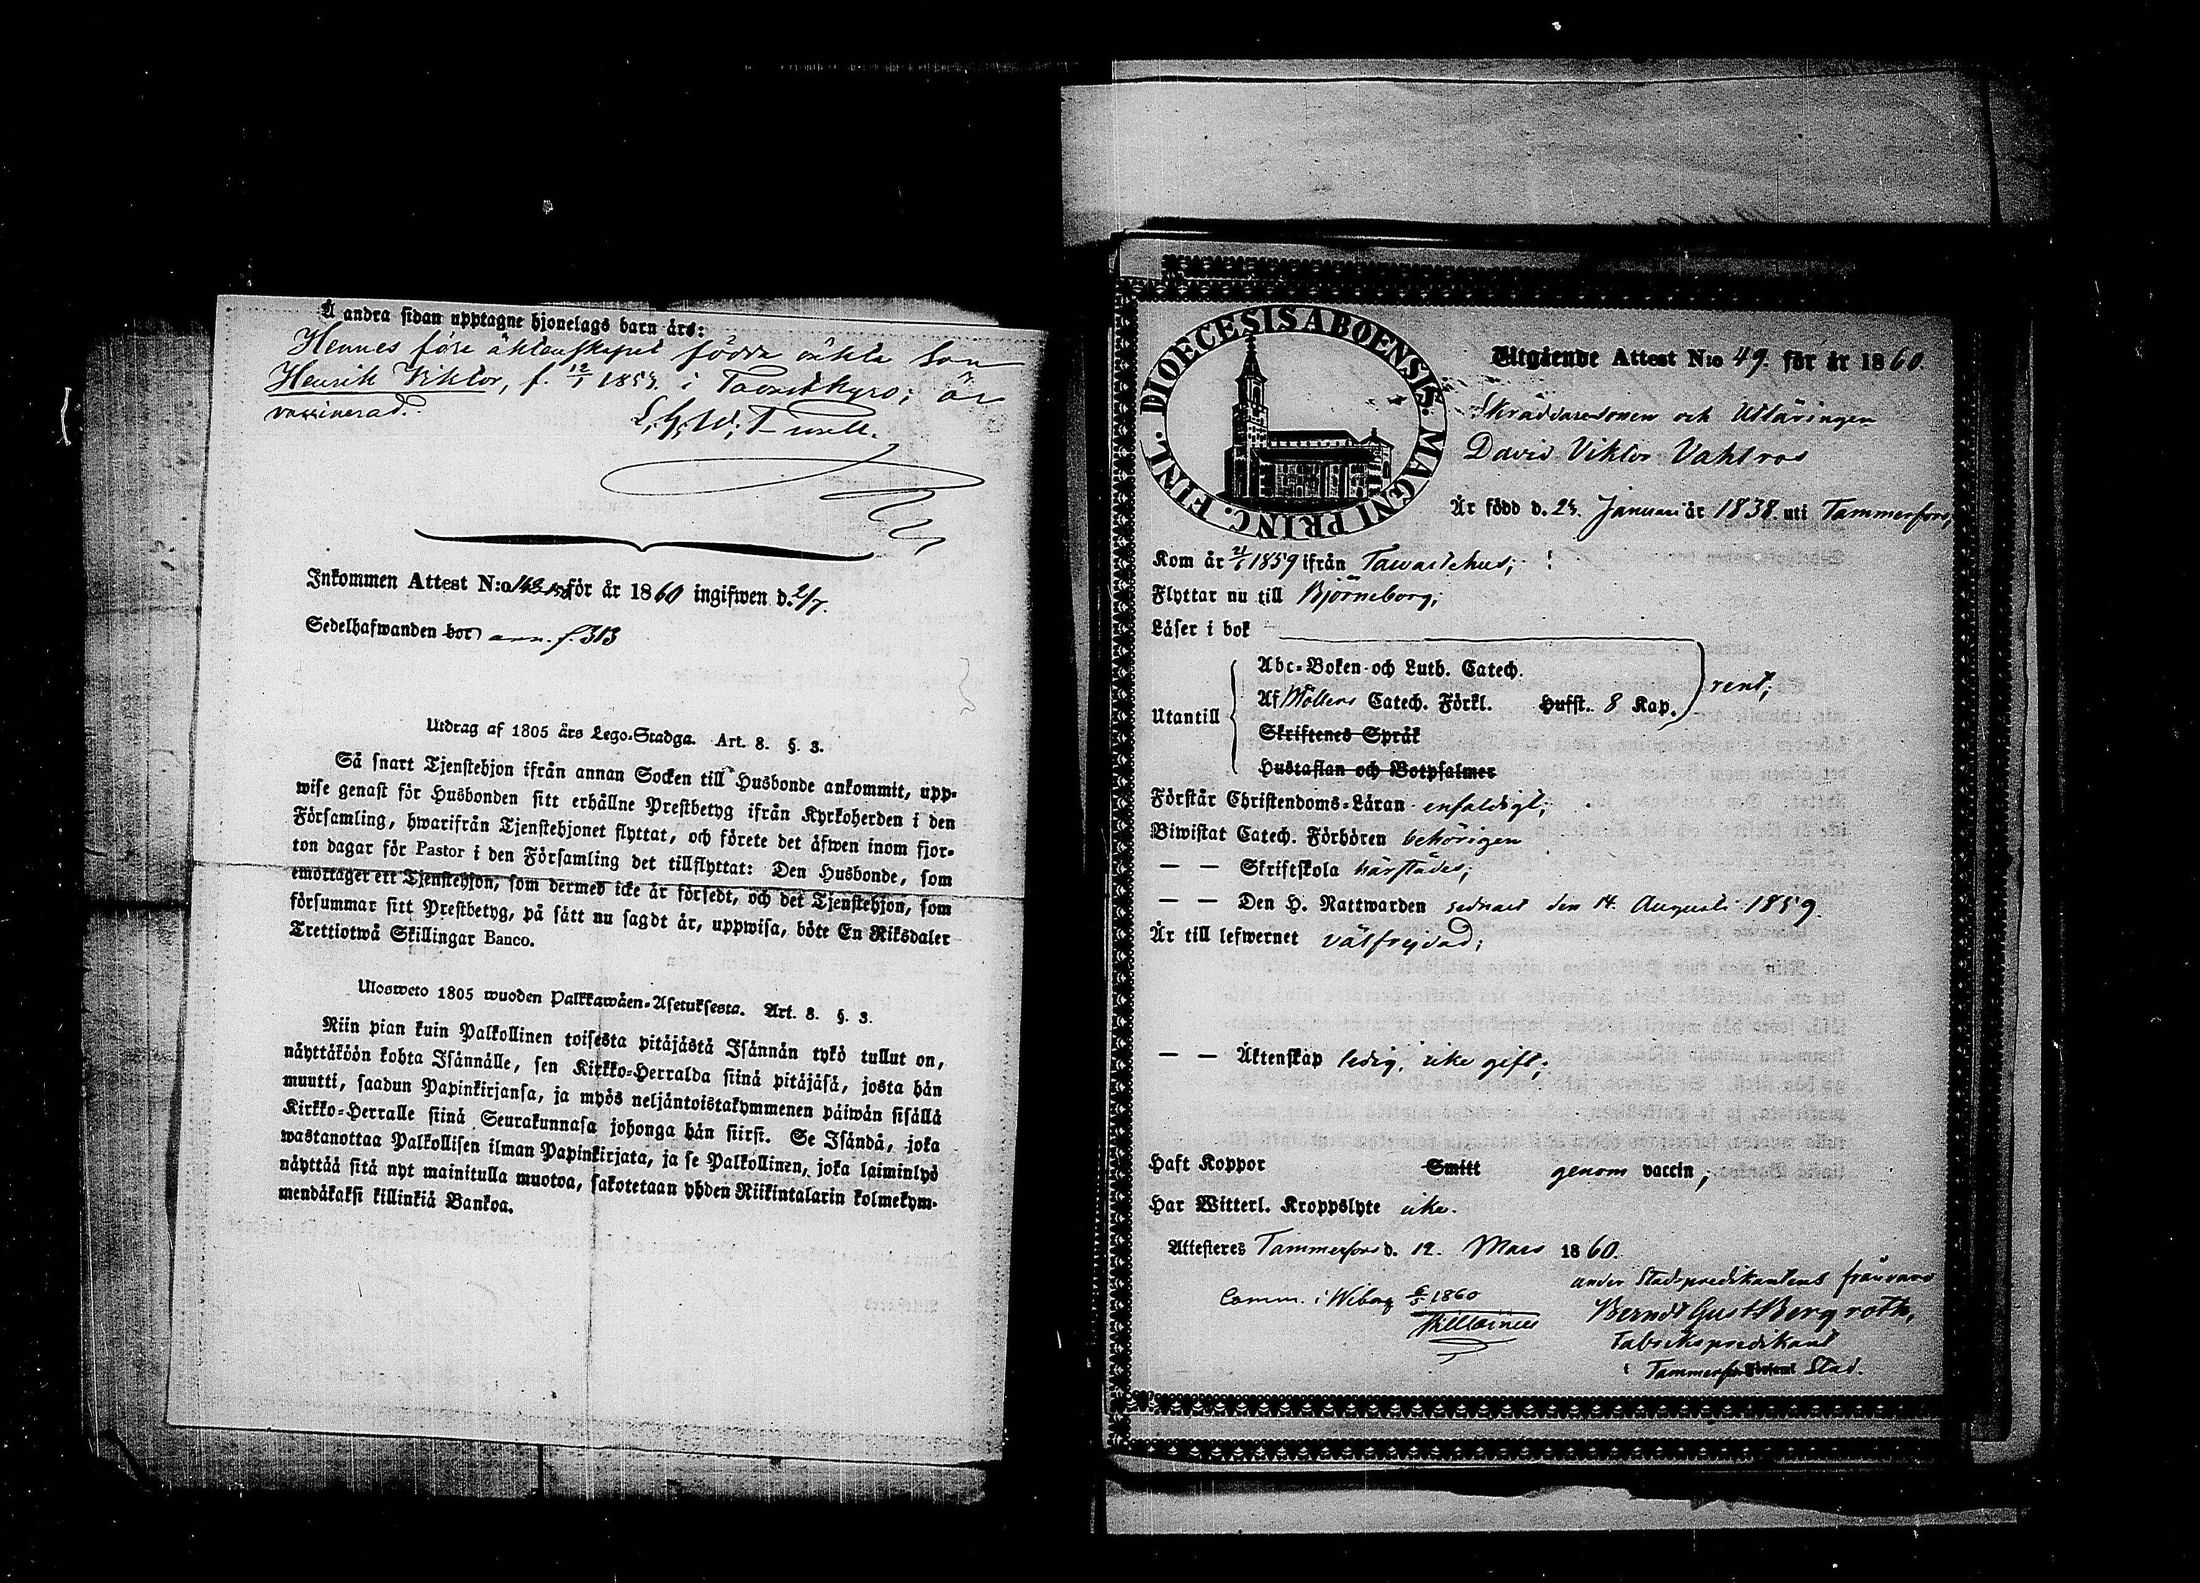 Å andra sidan upptagne hjonelags barn äro:
Hennes före äktenskapet födda oäkta Son
Henrik Viktor, f. 12/1 1854. i Tavastkyro; är
vaccinerad.
Inkommen Attest N:o för år 1860 ingifwen d. 2/7.
Sedelhafwanden bor ann. f. 313
Utdrag af 1805 års Lego-Stadga. Art. 8. §. 3.
Så snart Tjenstehjon ifrån annan Socken till Husbonde ankommit, upp-
wise genast för Husbonden sitt erhållne Prestbetyg ifrån Kyrkoherden i den
Församling, hwarifrån Tjenstehjonet flyttat, och förete det äfwen inom fjor-
ton dagar för Pastor i den Församling det tillflyttat: Den Husbonde, som
emottager ett Tjenstehjon, som dermed icke är försedt, och det Tjenstehjon, som
försummar sitt Prestbetyg, på sätt nu sagdt är, uppwisa, böte En Riksdaler
Trettiotwå Skillingar Banco.
Ulosweto 1805 wuoden Palkkawäen-Asetuksesta. Art. 8. §. 3.
Niin pian kuin Palkollinen toisesta pitäjästä Isännän tykö tullut on,
näyttäköön kohta Isännälle, sen Kirkko-Herralda siinä pitäjäsä, josta hän
muutti, saadun Papinkirjansa, ja myös neljäntoistakymmenen päiwän sisällä
Kirkko-Herralle siinä Seurakunnasa johonga hän siirsi. Se Isändä, joka
wastanottaa Palkollisen ilman Papinkirjata, ja se Palkollinen, joka laiminlyö
näyttää sitä nyt mainitulla muotoa, sakotetaan yhden Riikintalarin kolmekym-
mendäkaksi killinkiä Bankoa.
DIOECESIS ABOENSIS. MAGNI PRINC. FINL.
Utgående Attest N:o 49. för år 1860.
Skräddaresonen och Utläringen
David Viktor Vahlroos
Är född d. 23. Januari år 1838. uti Tammerfors;
Kom år 21/1 1859 ifrån Tawastehus;
Flyttar nu till Björneborg;
Läser i bok
Abc-Boken och Luth. Catech.
Utantill Af Möllers Catech. Förkl. Hufst. 8 Kap. rent;
Skriftenes Språk
Hustaflan och Botpsalmer
Förstår Christendoms-Läran enfaldigt;
Biwistat Catech. Förhören behörigen
— — Skriftskola härstädes;
— — Den H. Nattwarden sednast den 14. Augusti 1859.
Är till lefwernet välfrejdad;
— — Äktenskap ledig, icke gift;
Haft Koppor Smitt genom vaccin;
Har Witterl. Kroppslyte icke.
Attesteres Tammerfors d. 12. Mars 1860.
under Stadspredikantens frånvaro
Comm. i Wiborg 1860
Berndt Gust Bergroth,
Fabrikspredikant
i Tammerfors Församl Stad.